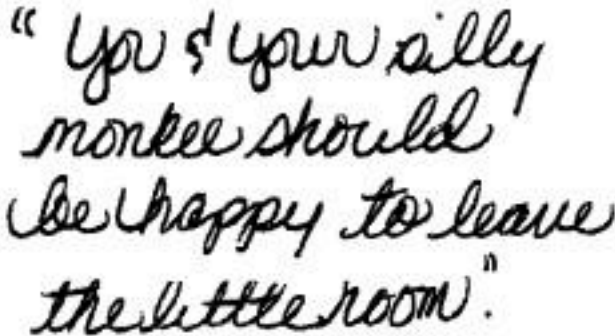 “You & your silly
monkee should
be happy to leave
the little room”.